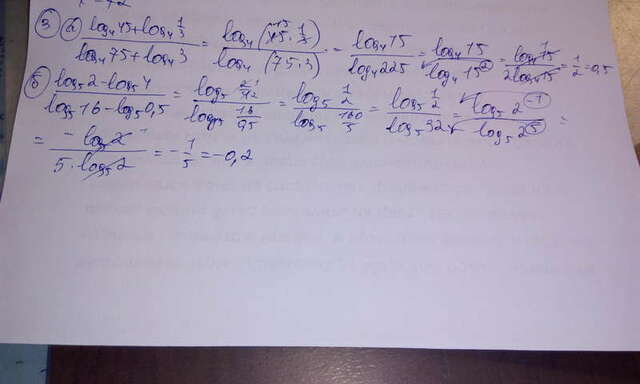 ③ ⓐ (log₄45 + log₄ 1/3) / (log₄75 + log₄3) = log₄(45 · 1/3) / log₄(75·3) = log₄15 / log₄225 = log₄15 / log₄15² = log₄15 / 2log₄15 = 1/2 = 0,5
ⓑ (log₅2 - log₅4) / (log₅16 - log₅0,5) = log₅ 2/4 / log₅ 16/0,5 = log₅ 1/2 / log₅ 160/5 = log₅ 1/2 / log₅32 = log₅2⁻¹ / log₅2⁵ =
= -log₅2 / 5·log₅2 = -1/5 = -0,2